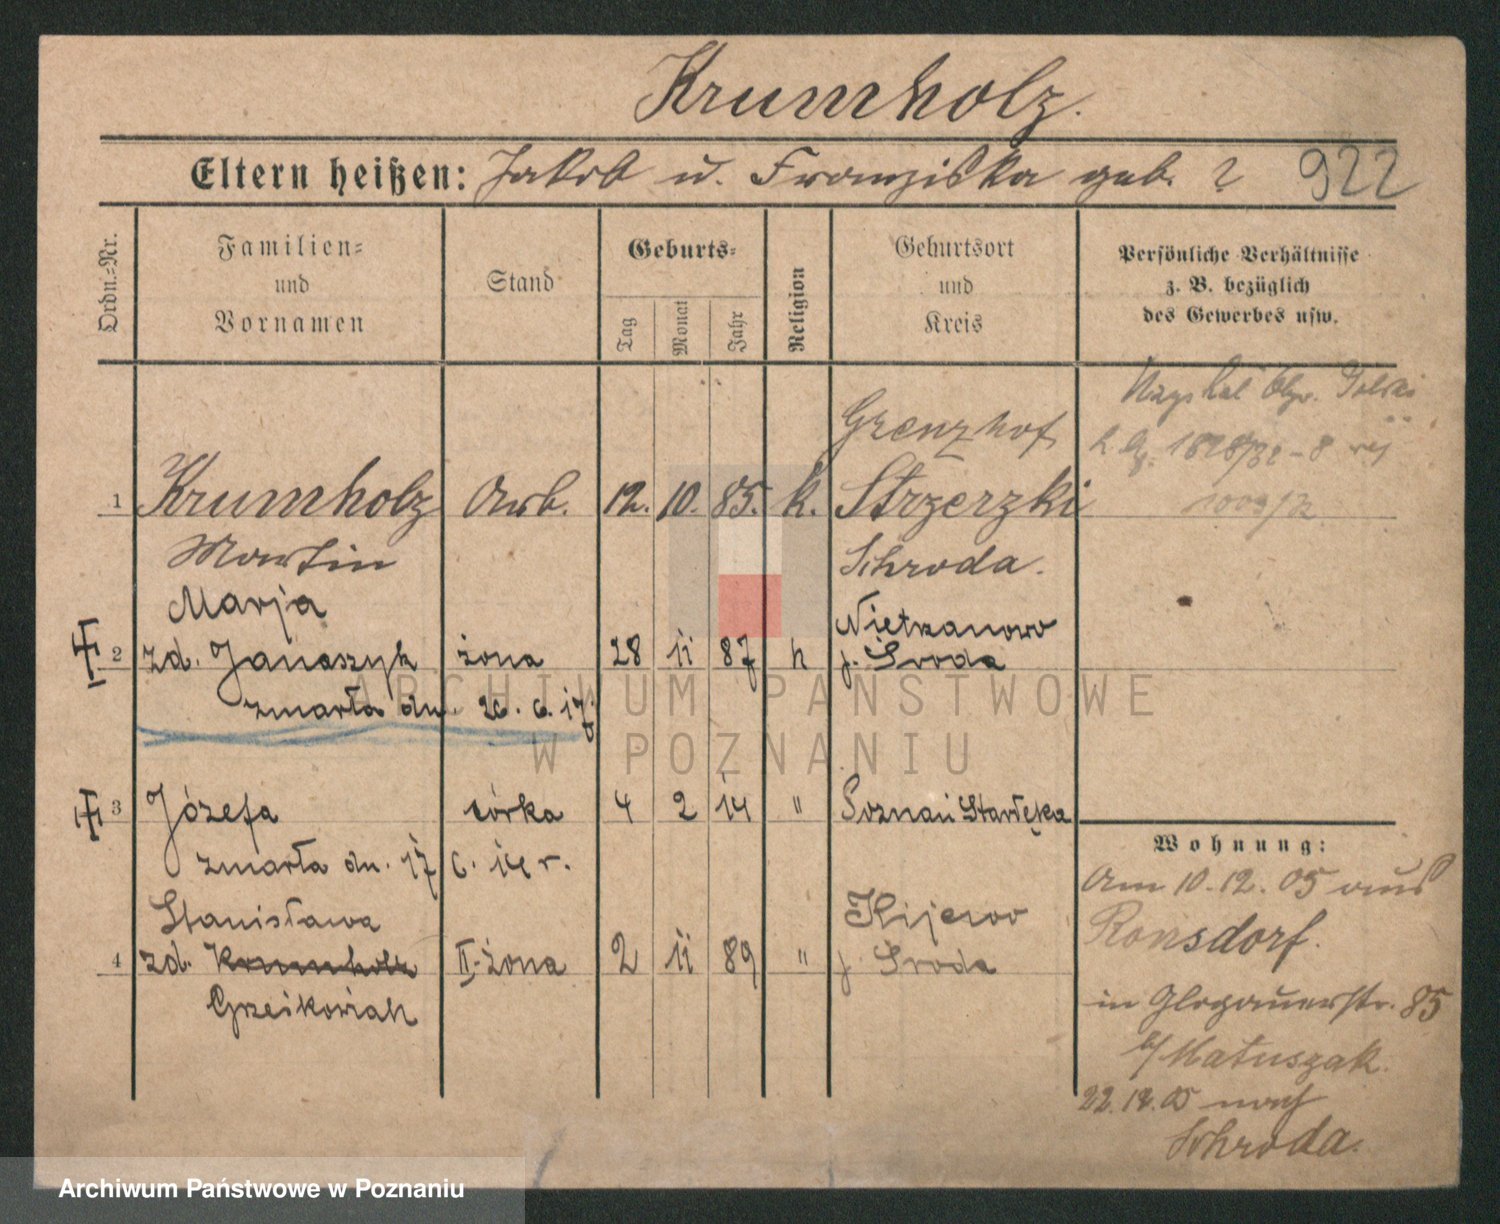 Krumholz.
Eltern heißen: Jakob u. Franziska geb. ? 922
Ordn.=Nr.
Familien=
und
Vornamen
Stand
Geburts=
Tag
Monat
Jahr
Religion
Geburtsort
und
Kreis
Persönliche Verhältnisse
z. B. bezüglich
des Gewerbes usw.
Grenzhof
1 Krumholz Arb. 12. 10. 85. k. Strzerzki
Martin Schroda.
Marja Nietrzanowo
2 zd. Janaszyk żona 28 11 87 k p. Środa
zmarła dn. 26. 6. 17
3 Józefa córka 4 2 14 " Poznań Starłęka
zmarła dn. 17 6. 14 r.
Stanisława Kijewo
4 zd. Krumholz II. żona 2 11 89 " p. Środa
Grześkowiak
Wohnung:
Am 10.12.05 aus
Ronsdorf.
in Glogauerstr. 85
b/ Matuszak.
22.12.05 nach
Schroda.
ARCHIWUM PAŃSTWOWE
W POZNANIU
Archiwum Państwowe w Poznaniu